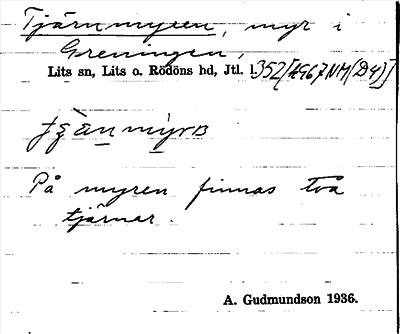 Tjärnmyren, myr i
Greningen,
Lits sn, Lits o. Rödöns hd, Jtl. l.352[AG67NM(D4)]
På myren finnas två
tjärnar.
A. Gudmundson 1936.